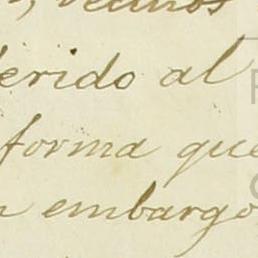 , vecinos
erido al
forma que
n embargo